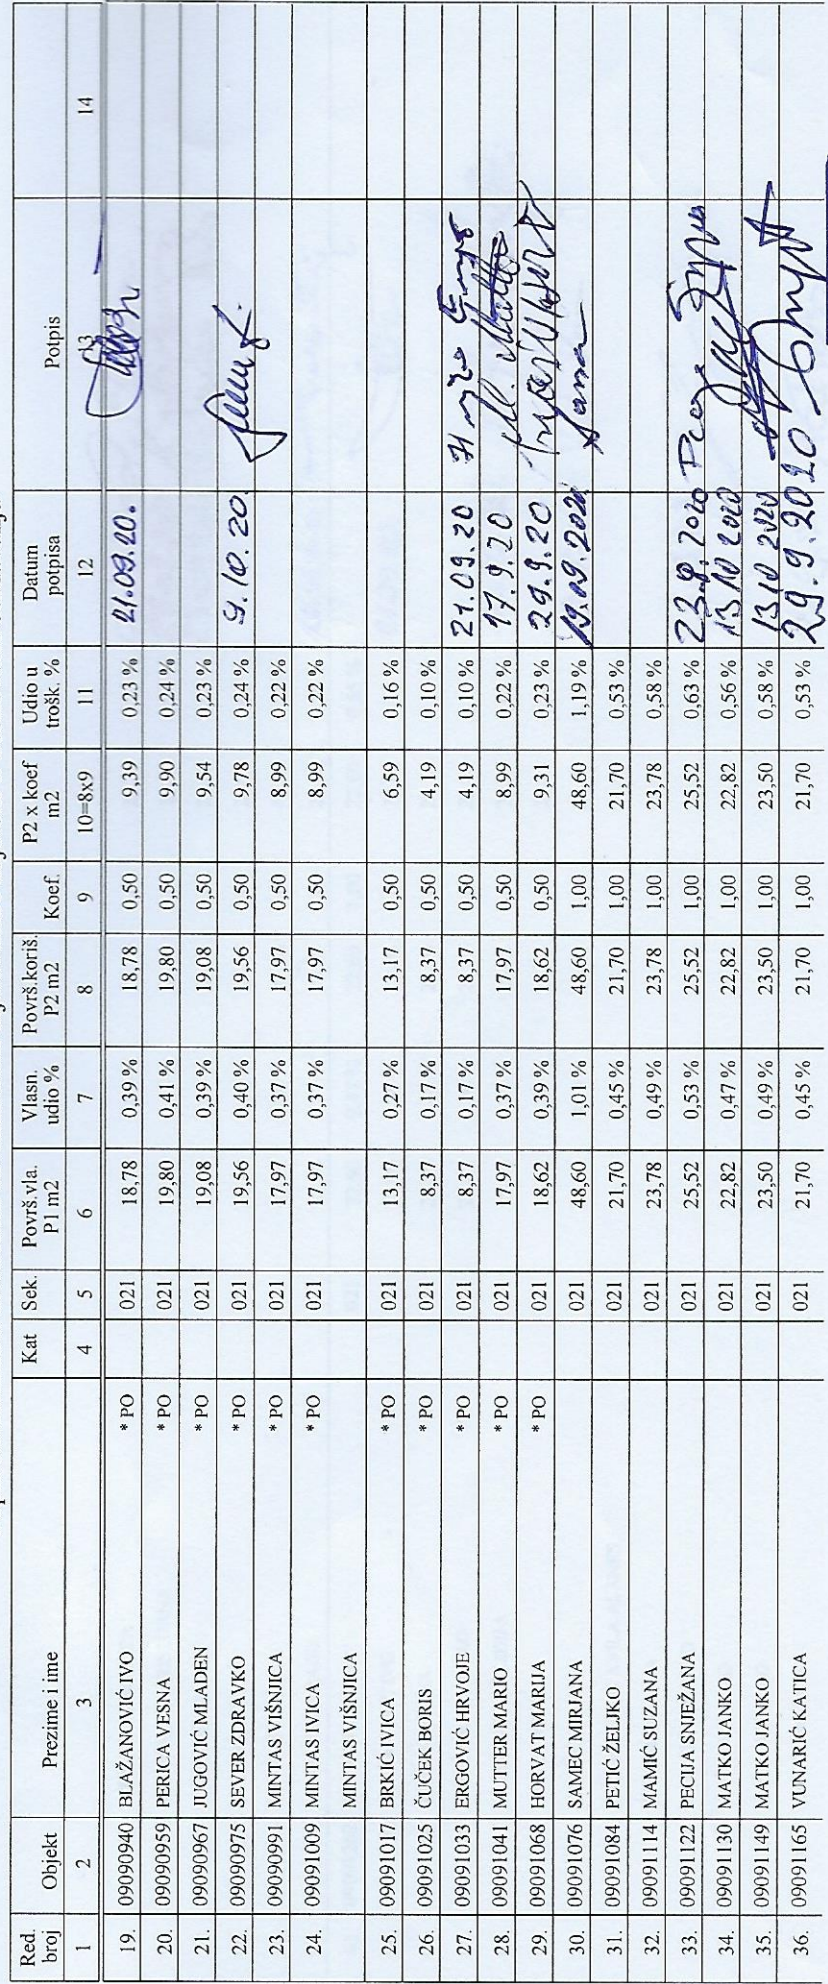 Red. broj Objekt Prezime i ime Kat Sek. Površ.vla. P1 m2 Vlasn. udio % Površ.koriš. P2 m2 Koef. P2 x koef m2 Udio u trošk. % Datum potpisa Potpis
1 2 3 4 5 6 7 8 9 10=8x9 11 12 13 14
19. 09090940 BLAŽANOVIĆ IVO * PO 021 18,78 0,39 % 18,78 0,50 9,39 0,23 % 21.09.20.
20. 09090959 PERICA VESNA * PO 021 19,80 0,41 % 19,80 0,50 9,90 0,24 %
21. 09090967 JUGOVIĆ MLADEN * PO 021 19,08 0,39 % 19,08 0,50 9,54 0,23 %
22. 09090975 SEVER ZDRAVKO * PO 021 19,56 0,40 % 19,56 0,50 9,78 0,24 % 9.10.20
23. 09090991 MINTAS VIŠNJICA * PO 021 17,97 0,37 % 17,97 0,50 8,99 0,22 %
24. 09091009 MINTAS IVICA * PO 021 17,97 0,37 % 17,97 0,50 8,99 0,22 %
MINTAS VIŠNJICA
25. 09091017 BRKIĆ IVICA * PO 021 13,17 0,27 % 13,17 0,50 6,59 0,16 %
26. 09091025 ČUČEK BORIS * PO 021 8,37 0,17 % 8,37 0,50 4,19 0,10 %
27. 09091033 ERGOVIĆ HRVOJE * PO 021 8,37 0,17 % 8,37 0,50 4,19 0,10 % 21.09.20
28. 09091041 MUTTER MARIO * PO 021 17,97 0,37 % 17,97 0,50 8,99 0,22 % 17.9.20 M. Mutter
29. 09091068 HORVAT MARIJA * PO 021 18,62 0,39 % 18,62 0,50 9,31 0,23 % 29.9.20
30. 09091076 SAMEC MIRJANA 021 48,60 1,01 % 48,60 1,00 48,60 1,19 % 19.09.2020.
31. 09091084 PETIĆ ŽELJKO 021 21,70 0,45 % 21,70 1,00 21,70 0,53 %
32. 09091114 MAMIĆ SUZANA 021 23,78 0,49 % 23,78 1,00 23,78 0,58 %
33. 09091122 PECIJA SNJEŽANA 021 25,52 0,53 % 25,52 1,00 25,52 0,63 % 23.9.2020
34. 09091130 MATKO JANKO 021 22,82 0,47 % 22,82 1,00 22,82 0,56 % 13 10 2020
35. 09091149 MATKO JANKO 021 23,50 0,49 % 23,50 1,00 23,50 0,58 % 13 10 2020
36. 09091165 VUNARIĆ KATICA 021 21,70 0,45 % 21,70 1,00 21,70 0,53 % 29.9.2020